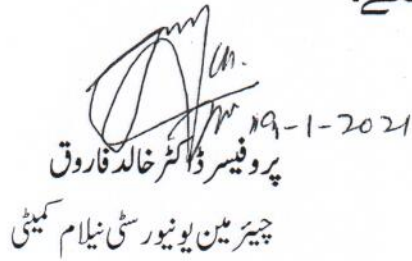 19-1-2021
پروفیسر ڈاکٹر خالد فاروق
چیئرمین یونیورسٹی نیلام کمیٹی